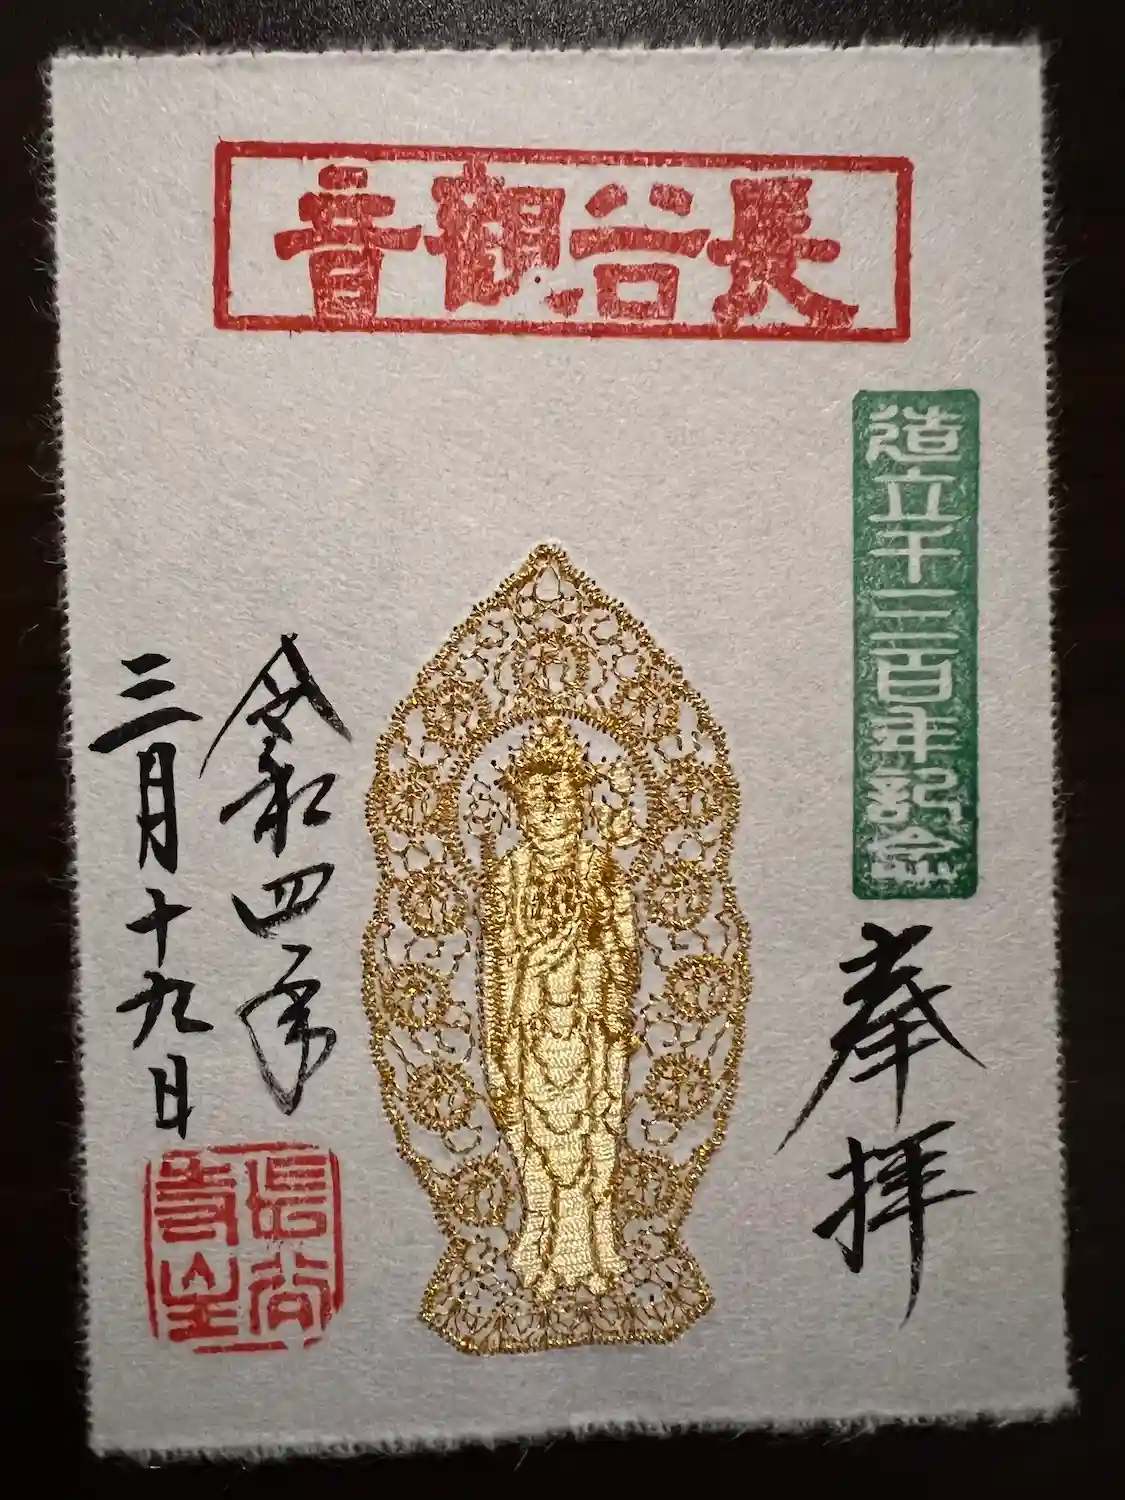 長谷観音
造立千三百年記念
奉拝
令和四年
三月十九日